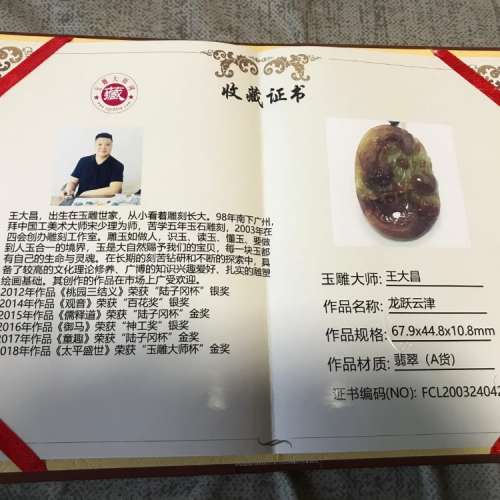 收藏证书
藏
王大昌，出生在玉雕世家，从小看着雕刻长大。98年南下广州，
拜中国工美术大师宋少理为师，苦学五年玉石雕刻，2003年在
四会创办雕刻工作室。雕玉如做人，识玉、读玉、懂玉，要做
到人玉合一的境界，玉是大自然赐予我们的宝贝，每一块玉都
有自己的生命与灵魂。在长期的刻苦钻研和不断的探索中，具
备了较高的文化理论修养、广博的知识兴趣爱好、扎实的雕塑
绘画基础。其创作的作品在市场上广受欢迎。
2012年作品《桃园三结义》荣获“陆子冈杯”银奖
2014年作品《观音》荣获“百花奖”银奖
2015年作品《儒释道》荣获“陆子冈杯”金奖
2016年作品《御马》荣获“神工奖”银奖
2017年作品《童趣》荣获“陆子冈杯”金奖
2018年作品《太平盛世》荣获“玉雕大师杯”金奖
玉雕大师：王大昌
作品名称：龙跃云津
作品规格：67.9x44.8x10.8mm
作品材质：翡翠（A货）
证书编码(NO)：FCL200324042